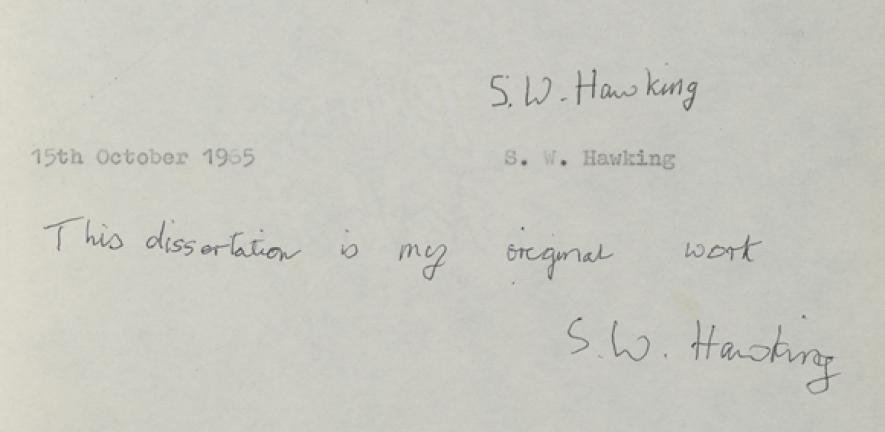 S. W. Hawking
15th October 1965 S. W. Hawking
This dissertation is my original work
S. W. Hawking